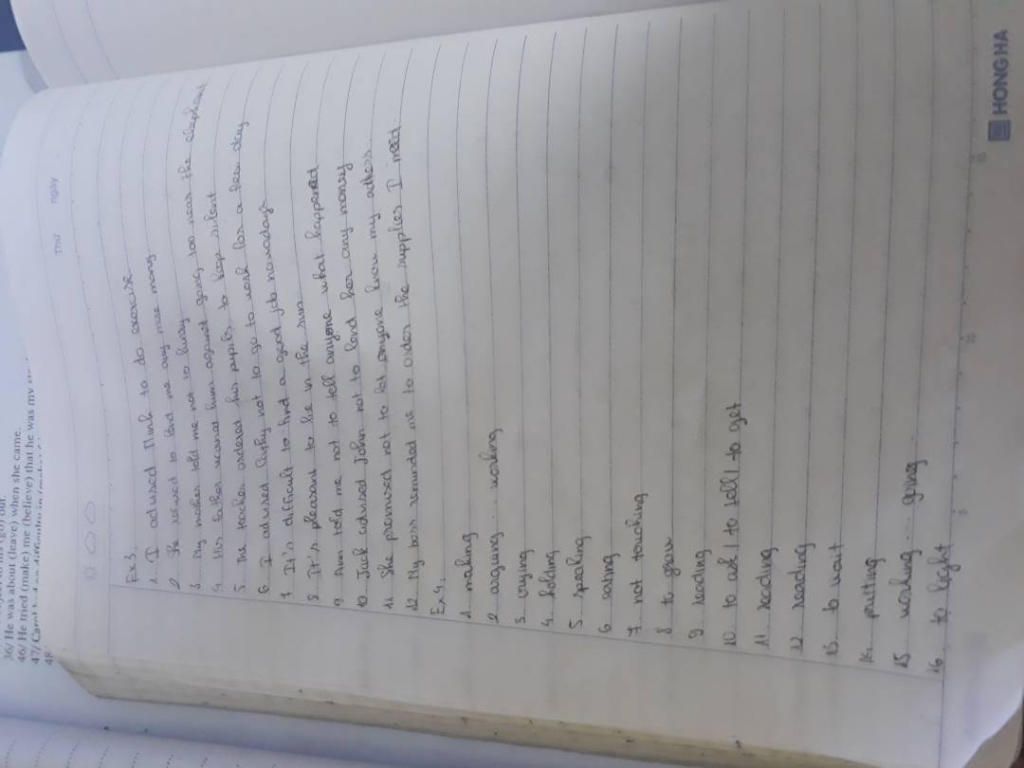 36/ He was about (leave) when she came.
46/ He tried (make) me (believe) that he was my
47/
48
Thứ ngày
Ex 3.
1. I advised Mank to do exercise
2. He refused to lend me any more money
3. My mother told me not to hurry
4. His father warned him against going too near the elephant
5. The teacher ordered his pupils to keep silent
6. I advised Highy not to go to work for a few days
7. It's difficult to find a good job nowadays
8. It's pleasant to lie in the sun
9. Ann told me not to tell anyone what happened
10. Jack advised John not to lend her any money
11. She promised not to let anyone know my adress
12. My boss reminded me to order the supplies I need.
Ex 4.
1. making
2. arguing... working
3. crying
4. holding
5. speaking
6. eating
7. not touching
8. to grow
9. reading
10. to ask / to tell / to get
11. reading
12. reading
13. to wait
14. putting
15. working... going
16. to light
5
10
15
HONG HA